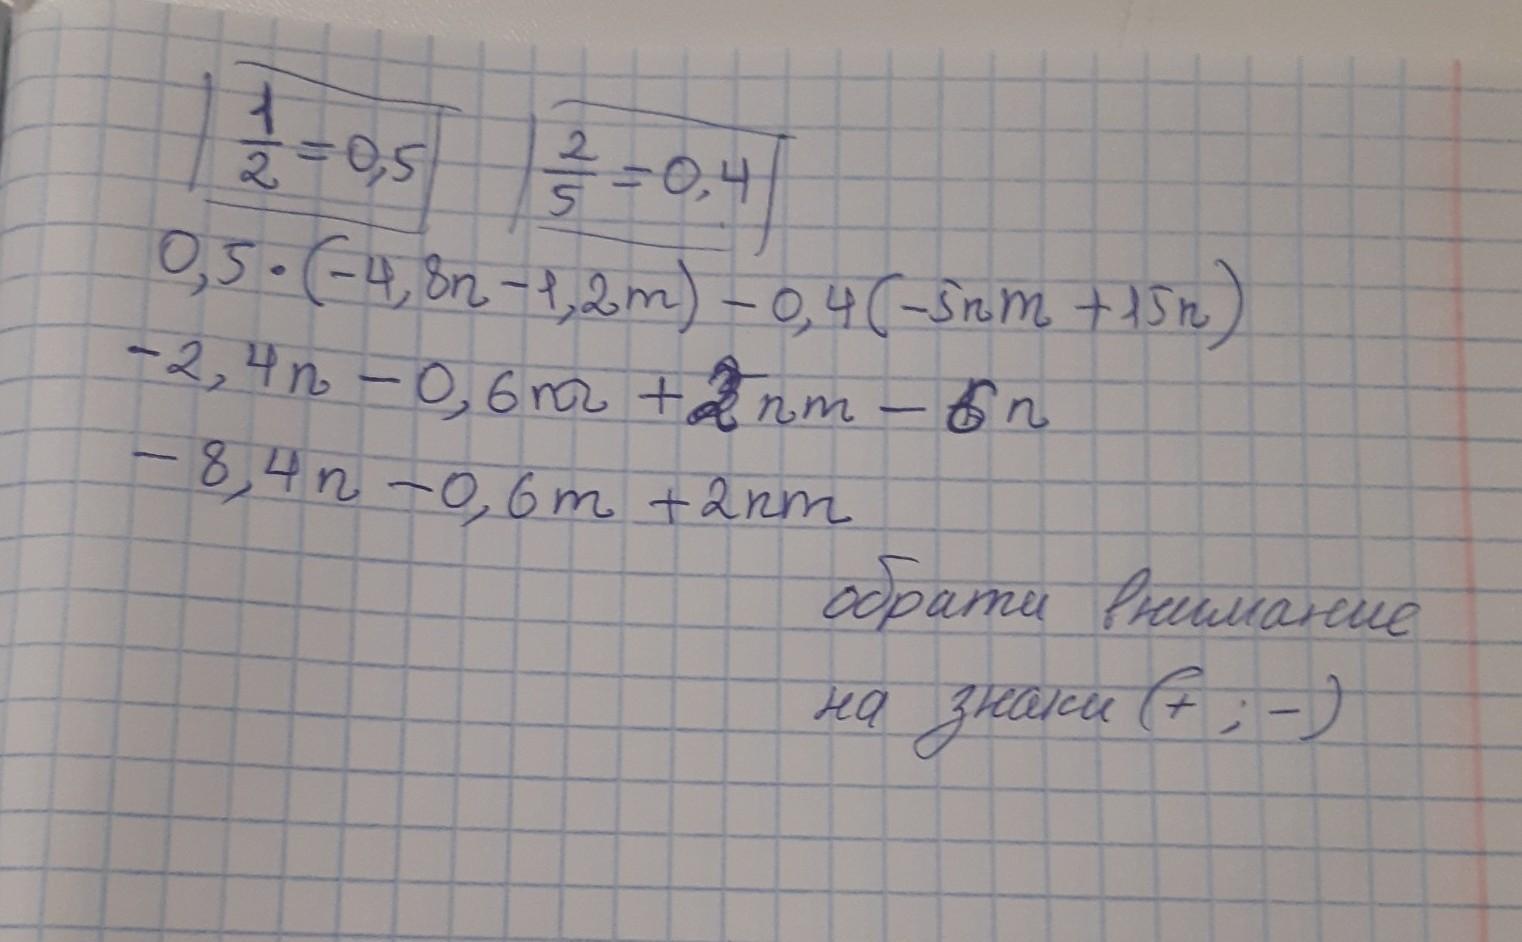 1/2 = 0,5   2/5 = 0,4
0,5·(-4,8n-1,2m)-0,4(-5nm+15n)
-2,4n-0,6m+2nm-6n
-8,4n-0,6m+2nm
обрати внимание
на знаки (+ ; -)